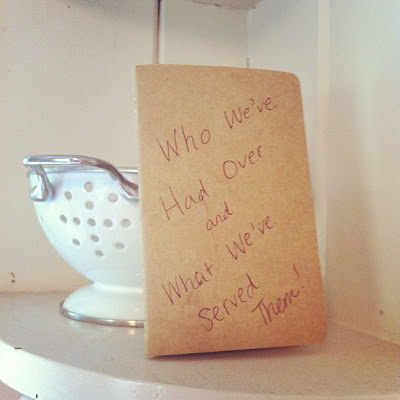 Who We've
Had Over
and
What We've
Served
Them!